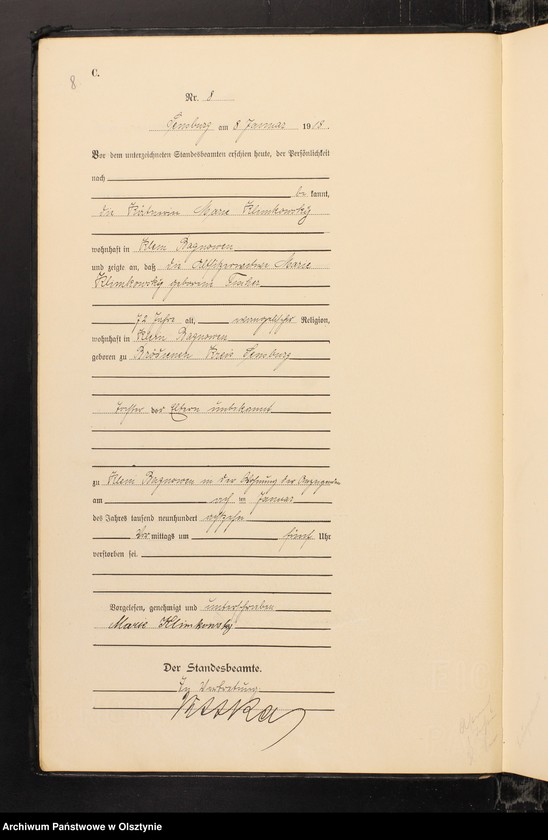 8
C.
Nr. 8
Sensburg am 8 Januar 1918.
Vor dem unterzeichneten Standesbeamten erschien heute, der Persönlichkeit
nach
be kannt,
die Kätnerin Marie Klimkowsky
wohnhaft in Klein Bagnowen
und zeigte an, daß die Altsitzerwitwe Marie
Klimkowsky geborene
72 Jahre alt, evangelischer Religion,
wohnhaft in Klein Bagnowen
geboren zu Brödienen Kreis Sensburg
Tochter der Eltern unbekannt
zu Klein Bagnowen in der Wohnung der Anzeigenden
am Januar
des Jahres tausend neunhundert achtzehn
Vor mittags um fünf Uhr
verstorben sei.
Vorgelesen, genehmigt und unterschrieben
Marie Klimkowsky
Der Standesbeamte.
In Vertretung
Archiwum Państwowe w Olsztynie